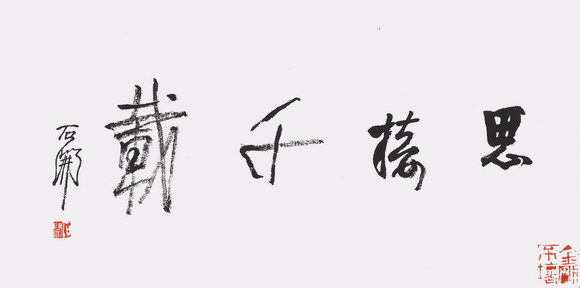 思接千載
石開